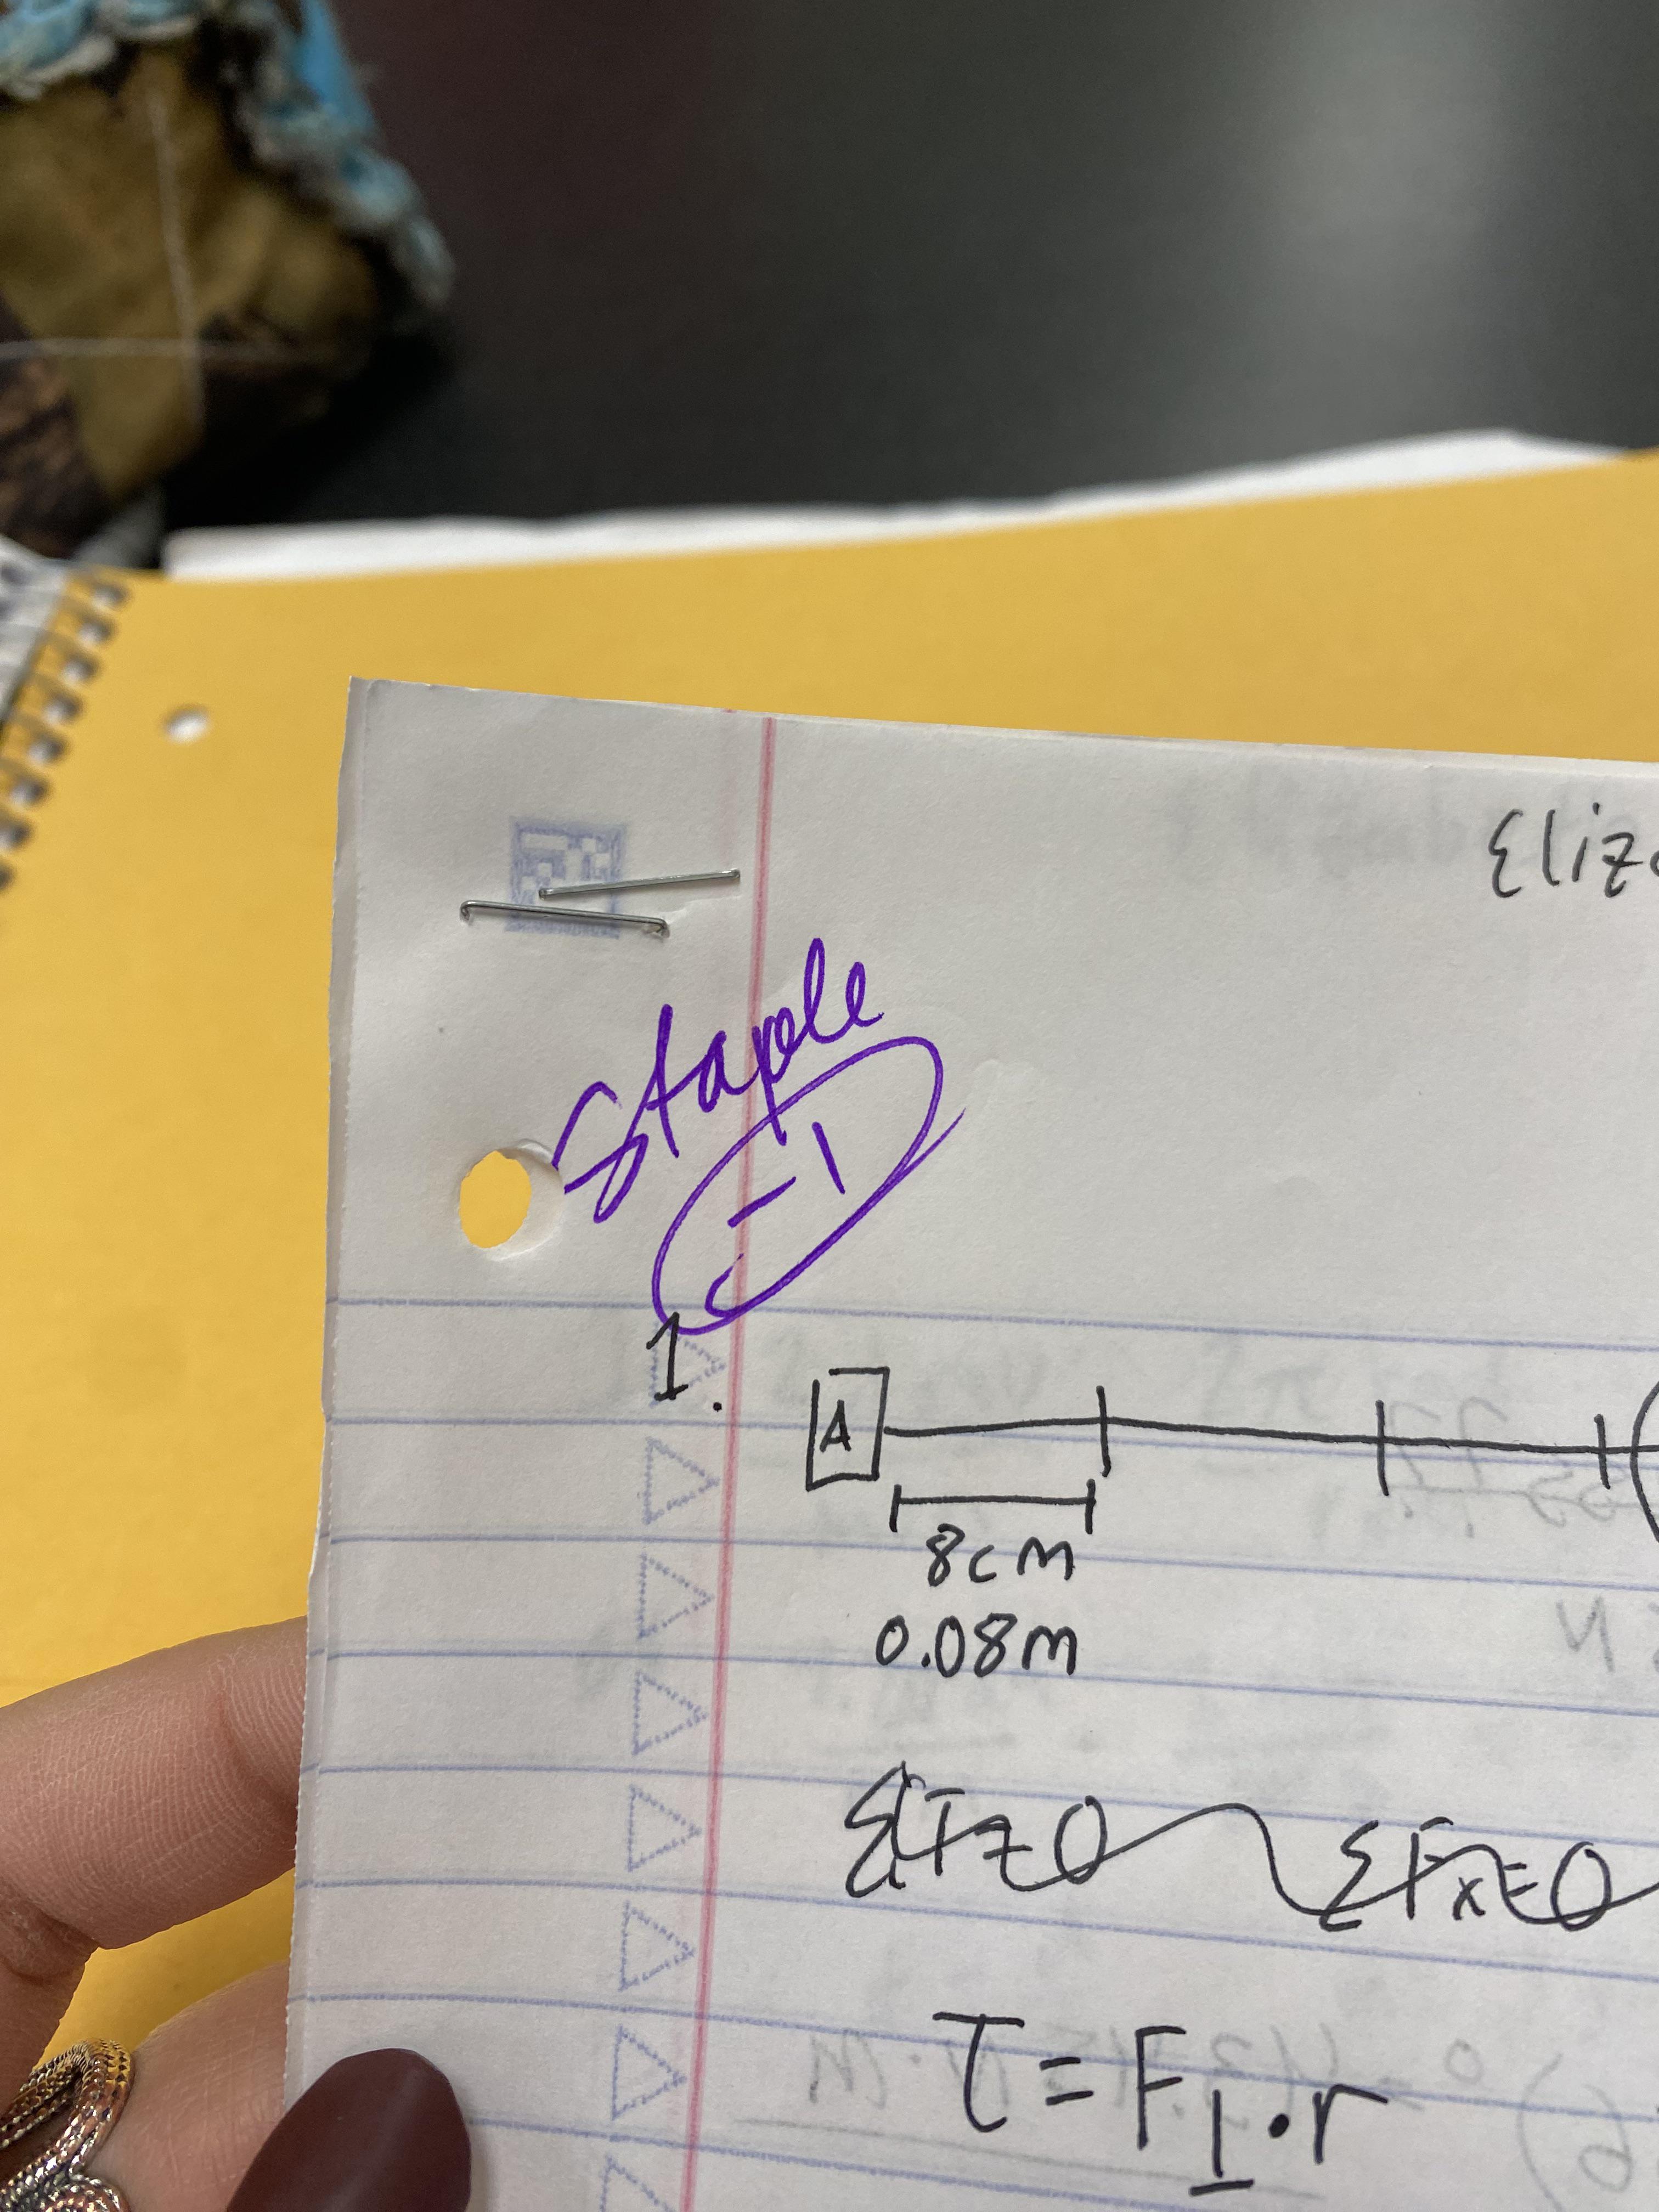 Eliz
Staple
-1
1.
A
8cm
0.08m
ΣF=0 ΣFx=0
τ=F⊥•r